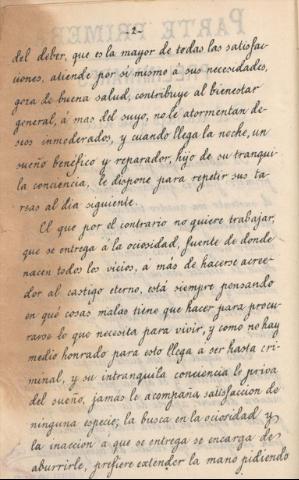 -2-
del deber, que es la mayor de todas las satisfac-
ciones, atiende por si mismo á sus necesidades,
goza de buena salud, contribuye al bienestar
general, á mas del suyo, no le atormentan de-
seos inmoderados, y cuando llega la noche, un
sueño benéfico y reparador, hijo de su tranqui-
la conciencia, le dispone para repetir sus ta-
reas al dia siguiente.
El que por el contrario no quiere trabajar,
que se entrega á la ociosidad, fuente de donde
nacen todos los vicios, á más de hacerse acree-
dor al castigo eterno, está siempre pensando
en que cosas malas tiene que hacer para procu-
rarse lo que necesita para vivir, y como no hay
medio honrado para esto llega a ser hasta cri-
minal, y su intranquila conciencia le priva
del sueño, jamás le acompaña satisfaccion de
ninguna especie; la busca en la ociosidad y
la inaccion á que se entrega se encarga de
aburrirle, prefiere extender la mano pidiendo